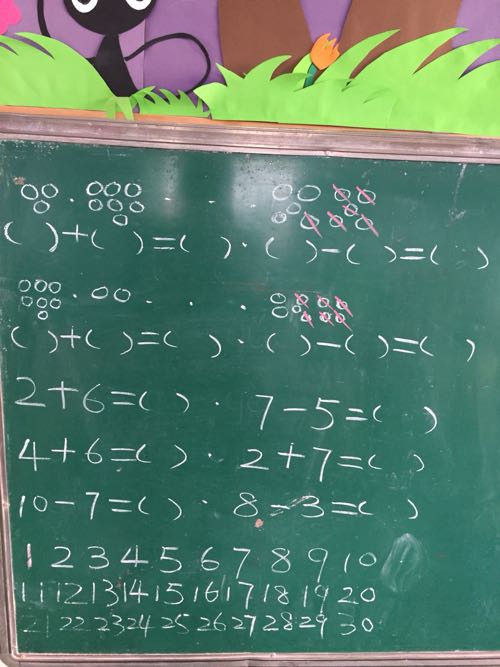 ( )+( )=( ) · ( )-( )=( )
( )+( )=( ) · ( )-( )=( )
2+6=( ) · 7-5=( )
4+6=( ) · 2+7=( )
10-7=( ) · 8-3=( )
1 2 3 4 5 6 7 8 9 10
11 12 13 14 15 16 17 18 19 20
21 22 23 24 25 26 27 28 29 30